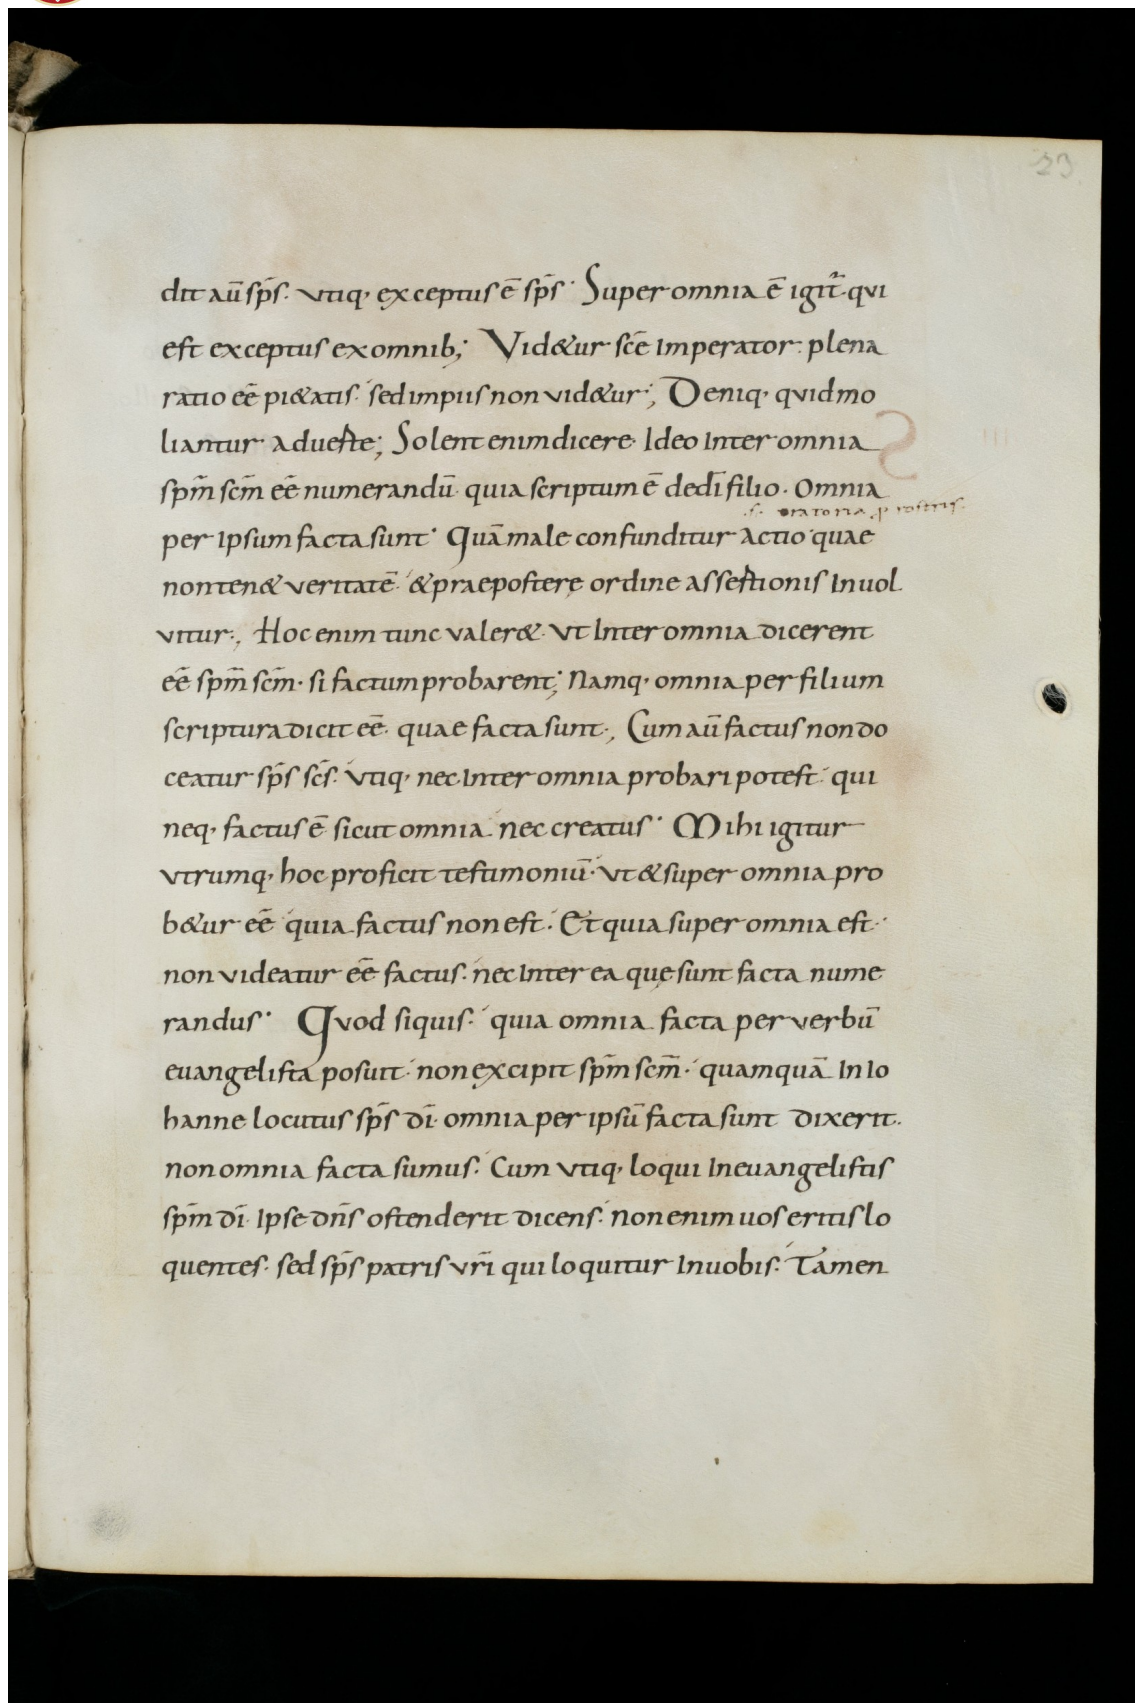 23
dit aū sp̄s. utiq; exceptus ē sp̄s. Super omnia ē igit̄ qui
est exceptus ex omnib; Vid&ur sc̄e imperator plena
ratio eē pi&atis. sed impiis non vid&ur; Deniq; quid mo
liantur advertite; Solent enim dicere Ideo inter omnia
sp̄m sc̄m eē numerandū quia scriptum ē dedī filio. Omnia
.s. oratoria p rostris.
per ipsum facta sunt. Quā male confunditur actio quae
non ten& veritatē &praepostere ordine assertionis invol
vitur; Hoc enim tunc valer& ut inter omnia dicerent
eē sp̄m sc̄m. si factum probarent; Namq; omnia per filium
scriptura dicit eē quae facta sunt; Cum aū factus non do
ceatur sp̄s sc̄s. utiq; nec inter omnia probari potest qui
neq; factus ē sicut omnia nec creatus. Mihi igitur
utrumq; hoc proficit testimoniū. ut &super omnia pro
b&ur eē quia factus non est. Et quia super omnia est
non videatur eē factus. nec inter ea quę sunt facta nume
randus. Quod siquis. quia omnia facta per verbū
evangelista posuit non excipit sp̄m sc̄m. quamquā in io
hanne locutus sp̄s dī omnia per ipsū facta sunt dixerit.
non omnia facta sumus. Cum utiq; loqui in evangelistis
sp̄m dī ipse dn̄s ostenderit dicens. non enim vos eritis lo
quentes. sed sp̄s patris vr̄i qui loquitur in vobis. Tamen